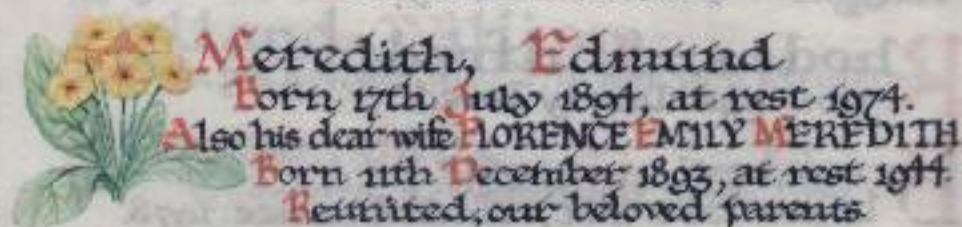 Meredith, Edmund
Born 17th July 1894, at rest 1974.
Also his dear wife FLORENCE EMILY MEREDITH
Born 11th December 1893, at rest 1944.
Reunited, our beloved parents.